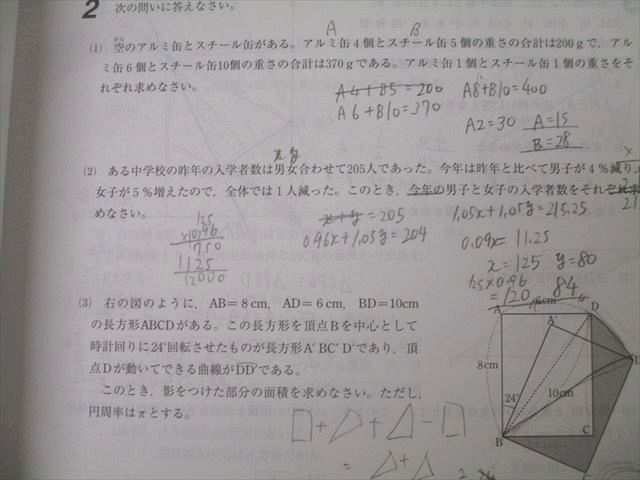 2 次の問いに答えなさい。
A B
(1) 空のアルミ缶とスチール缶がある。アルミ缶4個とスチール缶5個の重さの合計は200gで,アル
から
ミ缶6個とスチール缶10個の重さの合計は370gである。アルミ缶1個とスチール缶1個の重さをそ
れぞれ求めなさい。
A4+B5=200
A8+B10=400
A6+B10=370
A2=30 A=15
B=28
x y
(2) ある中学校の昨年の入学者数は男女合わせて205人であった。今年は昨年と比べて男子が4%減り,
女子が5%増えたので,全体では1人減った。このとき,今年の男子と女子の入学者数をそれぞれ求
めなさい。
x+y=205
1.05x+1.05y=215.25
0.96x+1.05y=204
0.09x=11.25
x=125 y=80
125
×0.96
750
1125
12000
125×0.96
=120 84
(3) 右の図のように,AB=8cm,AD=6cm,BD=10cm
の長方形ABCDがある。この長方形を頂点Bを中心として
時計回りに24°回転させたものが長方形A′BC′D′であり,頂
点Dが動いてできる曲線がDD′である。
このとき,影をつけた部分の面積を求めなさい。ただし,
円周率はπとする。
A 6cm D
A′
8cm
10cm
24°
B C